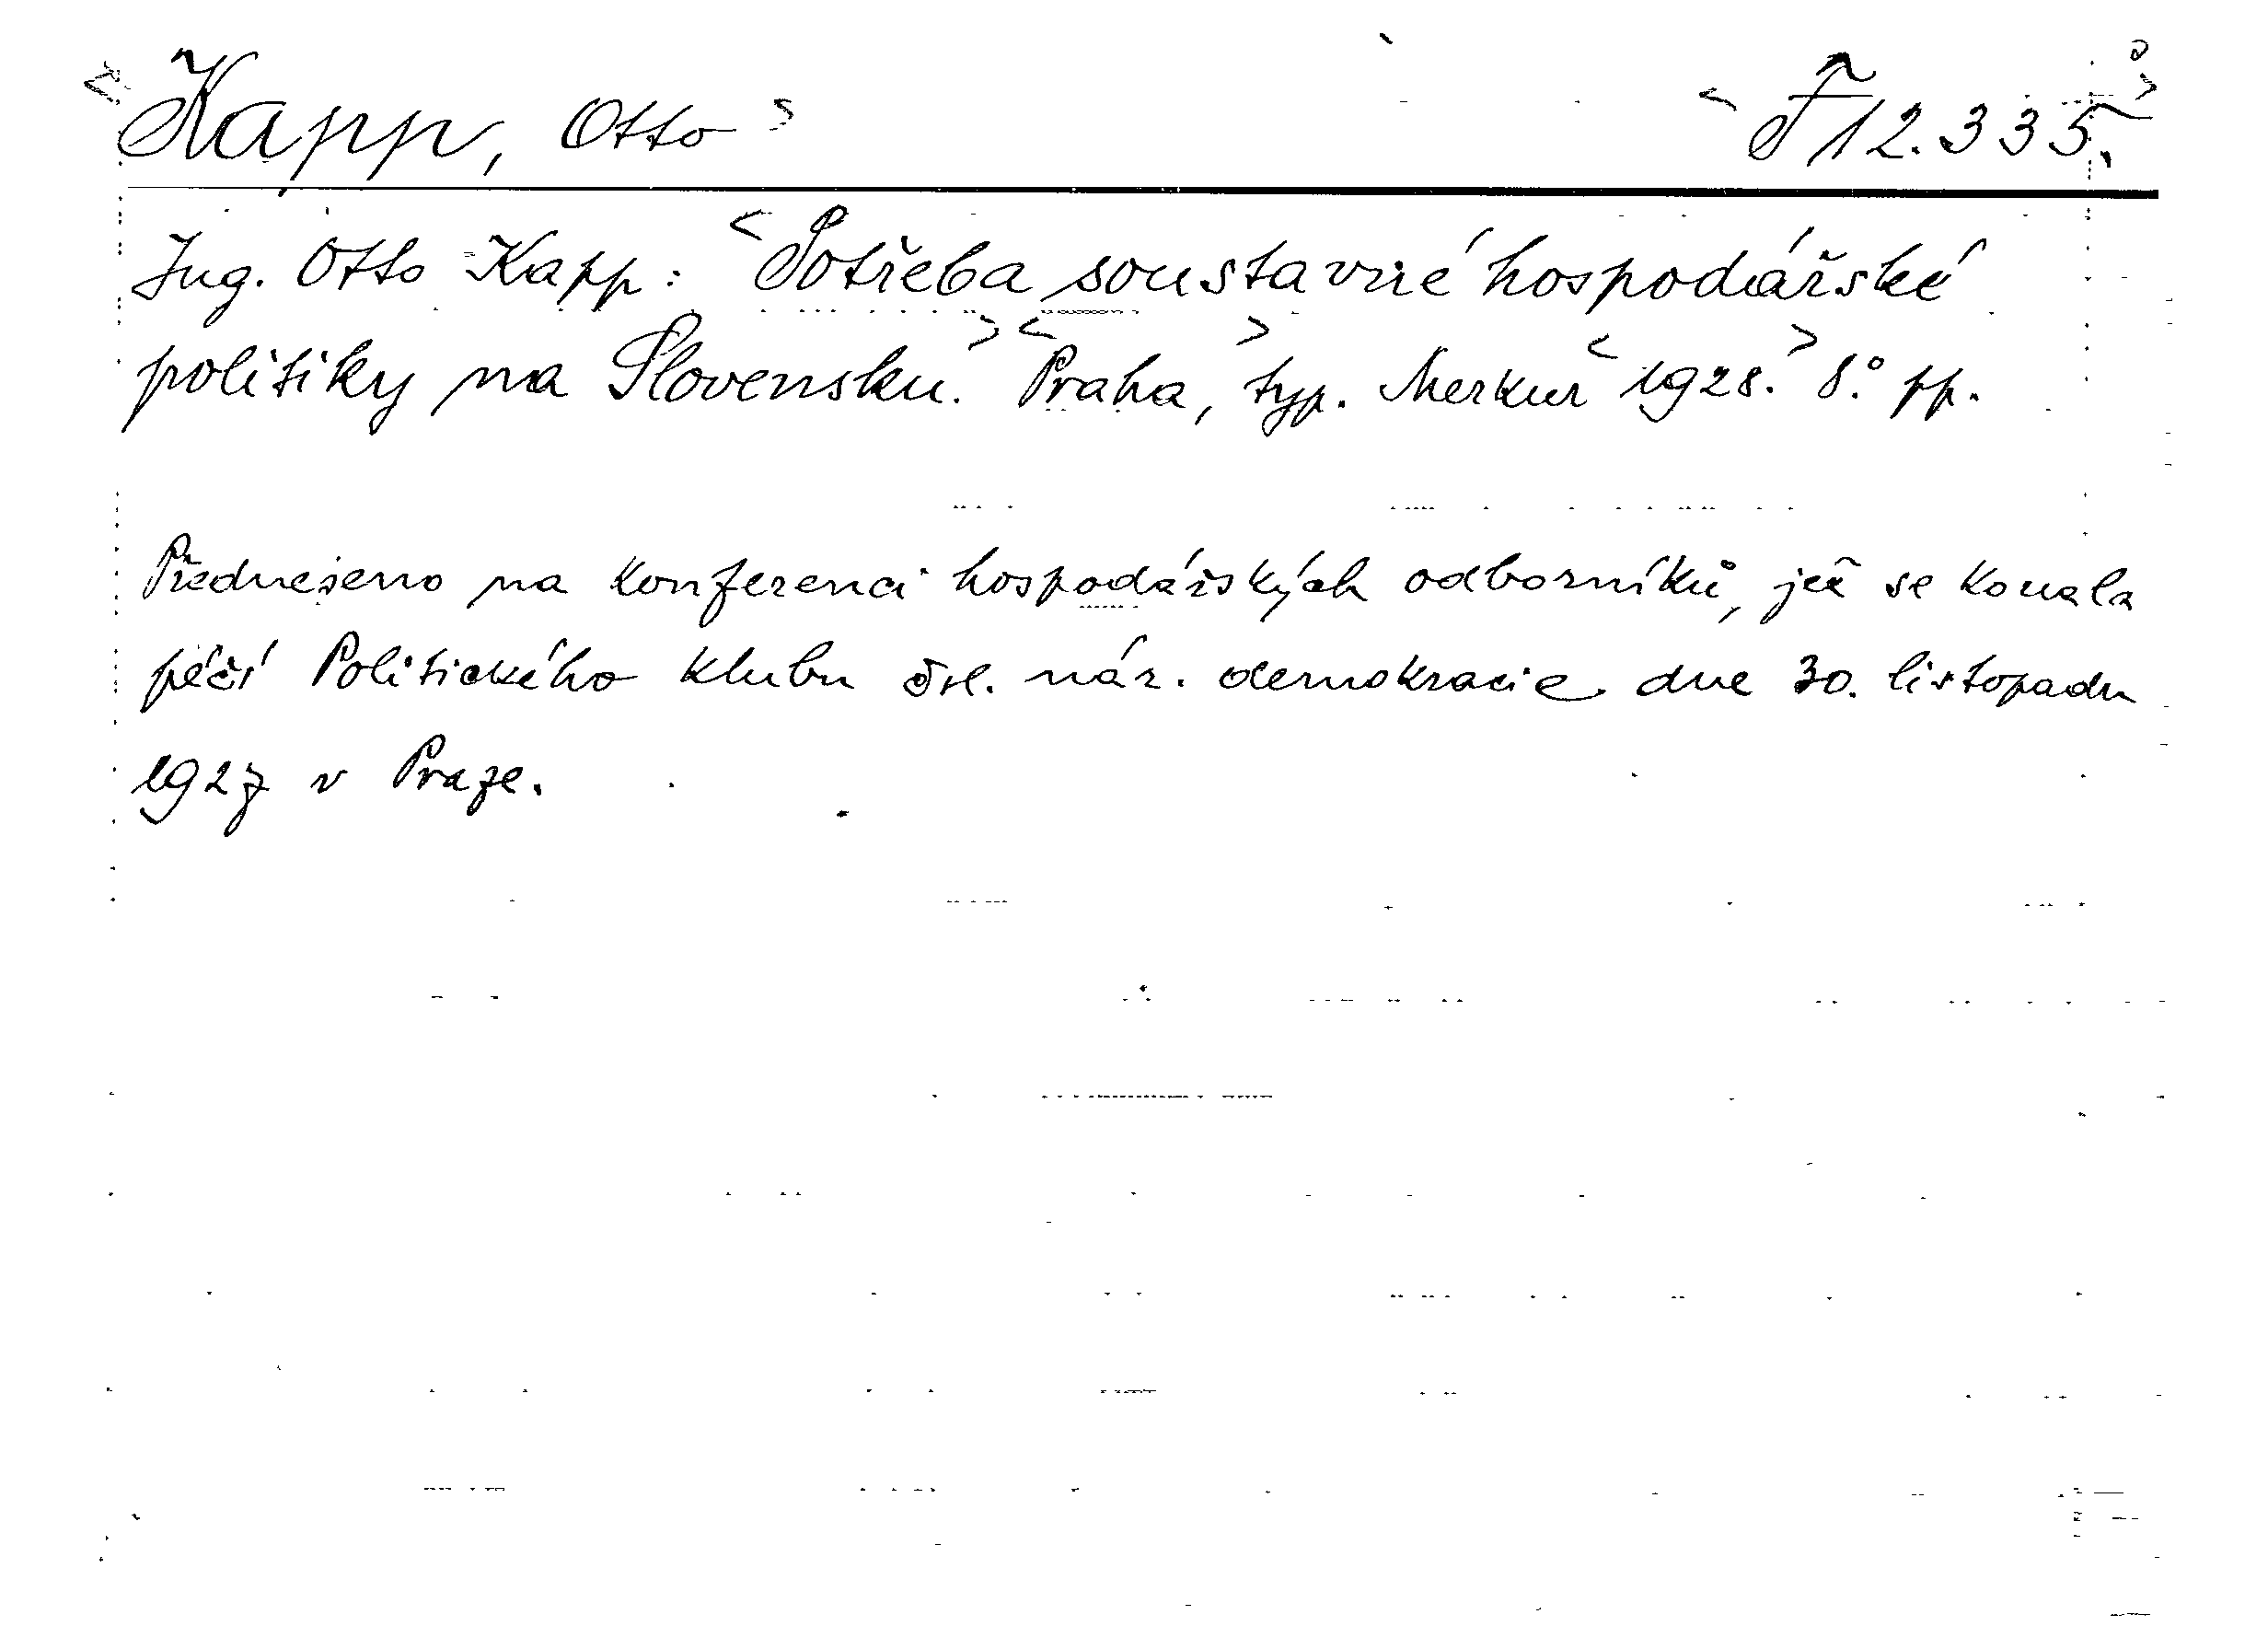 Kapp, Otto F 12.335.
Ing. Otto Kapp: Potřeba soustavné hospodářské
politiky na Slovensku. Praha, typ. Merkur 1928. 8.° pp.
Předneseno na konferenci hospodářských odborníků, jež se konala
péčí Politického klubu čsl. nár. demokracie dne 30. listopadu
1927 v Praze.